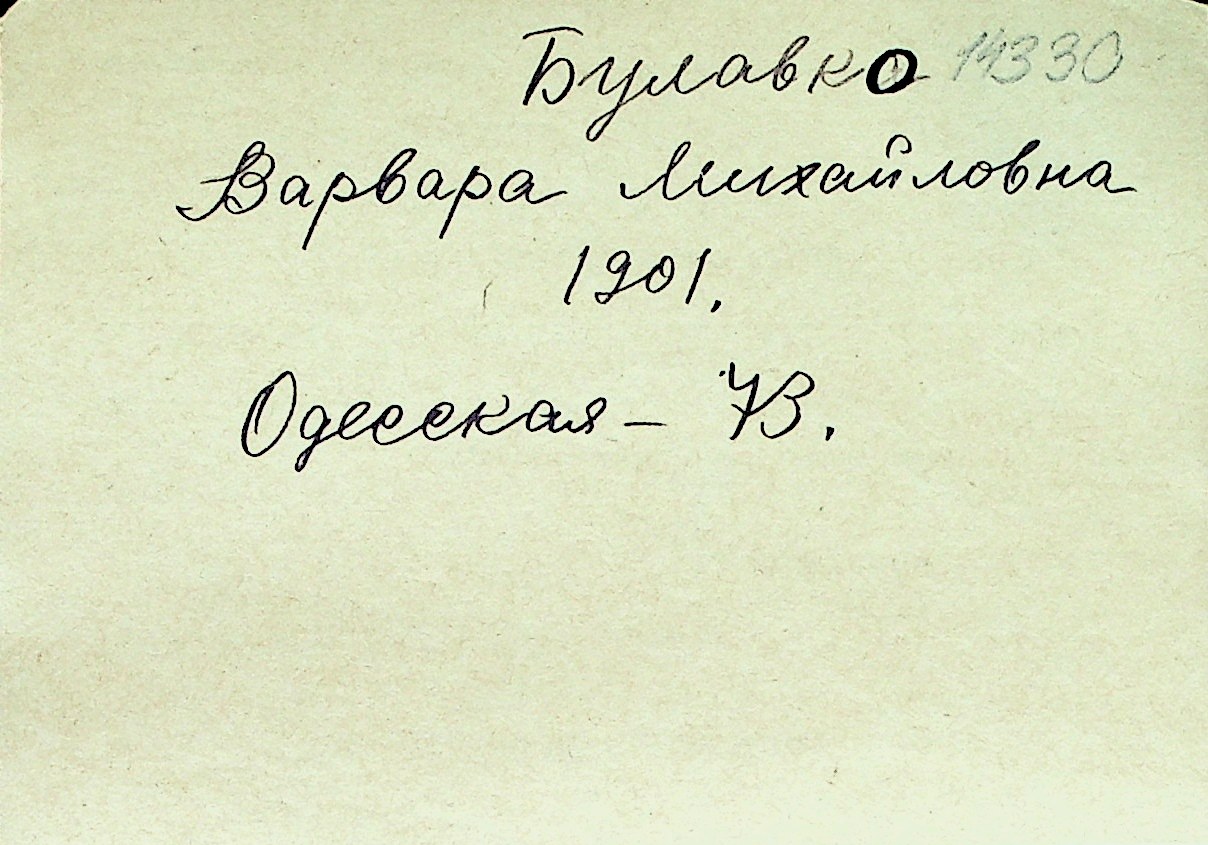 Булавко 14330
Варвара Михайловна
1901.
Одесская – 73.